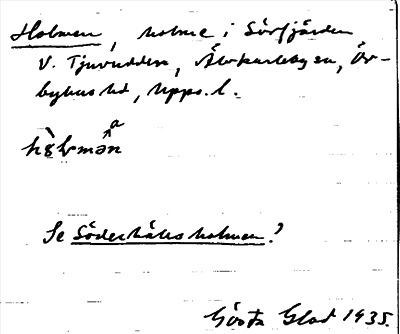 Holmen, holme i Sörfjärden
V. Tjuvudden, Älvkarleby sn, Ör-
byhus hd, Upps. l.
Se Söderhällsholmen?
Gösta Glad 1935.